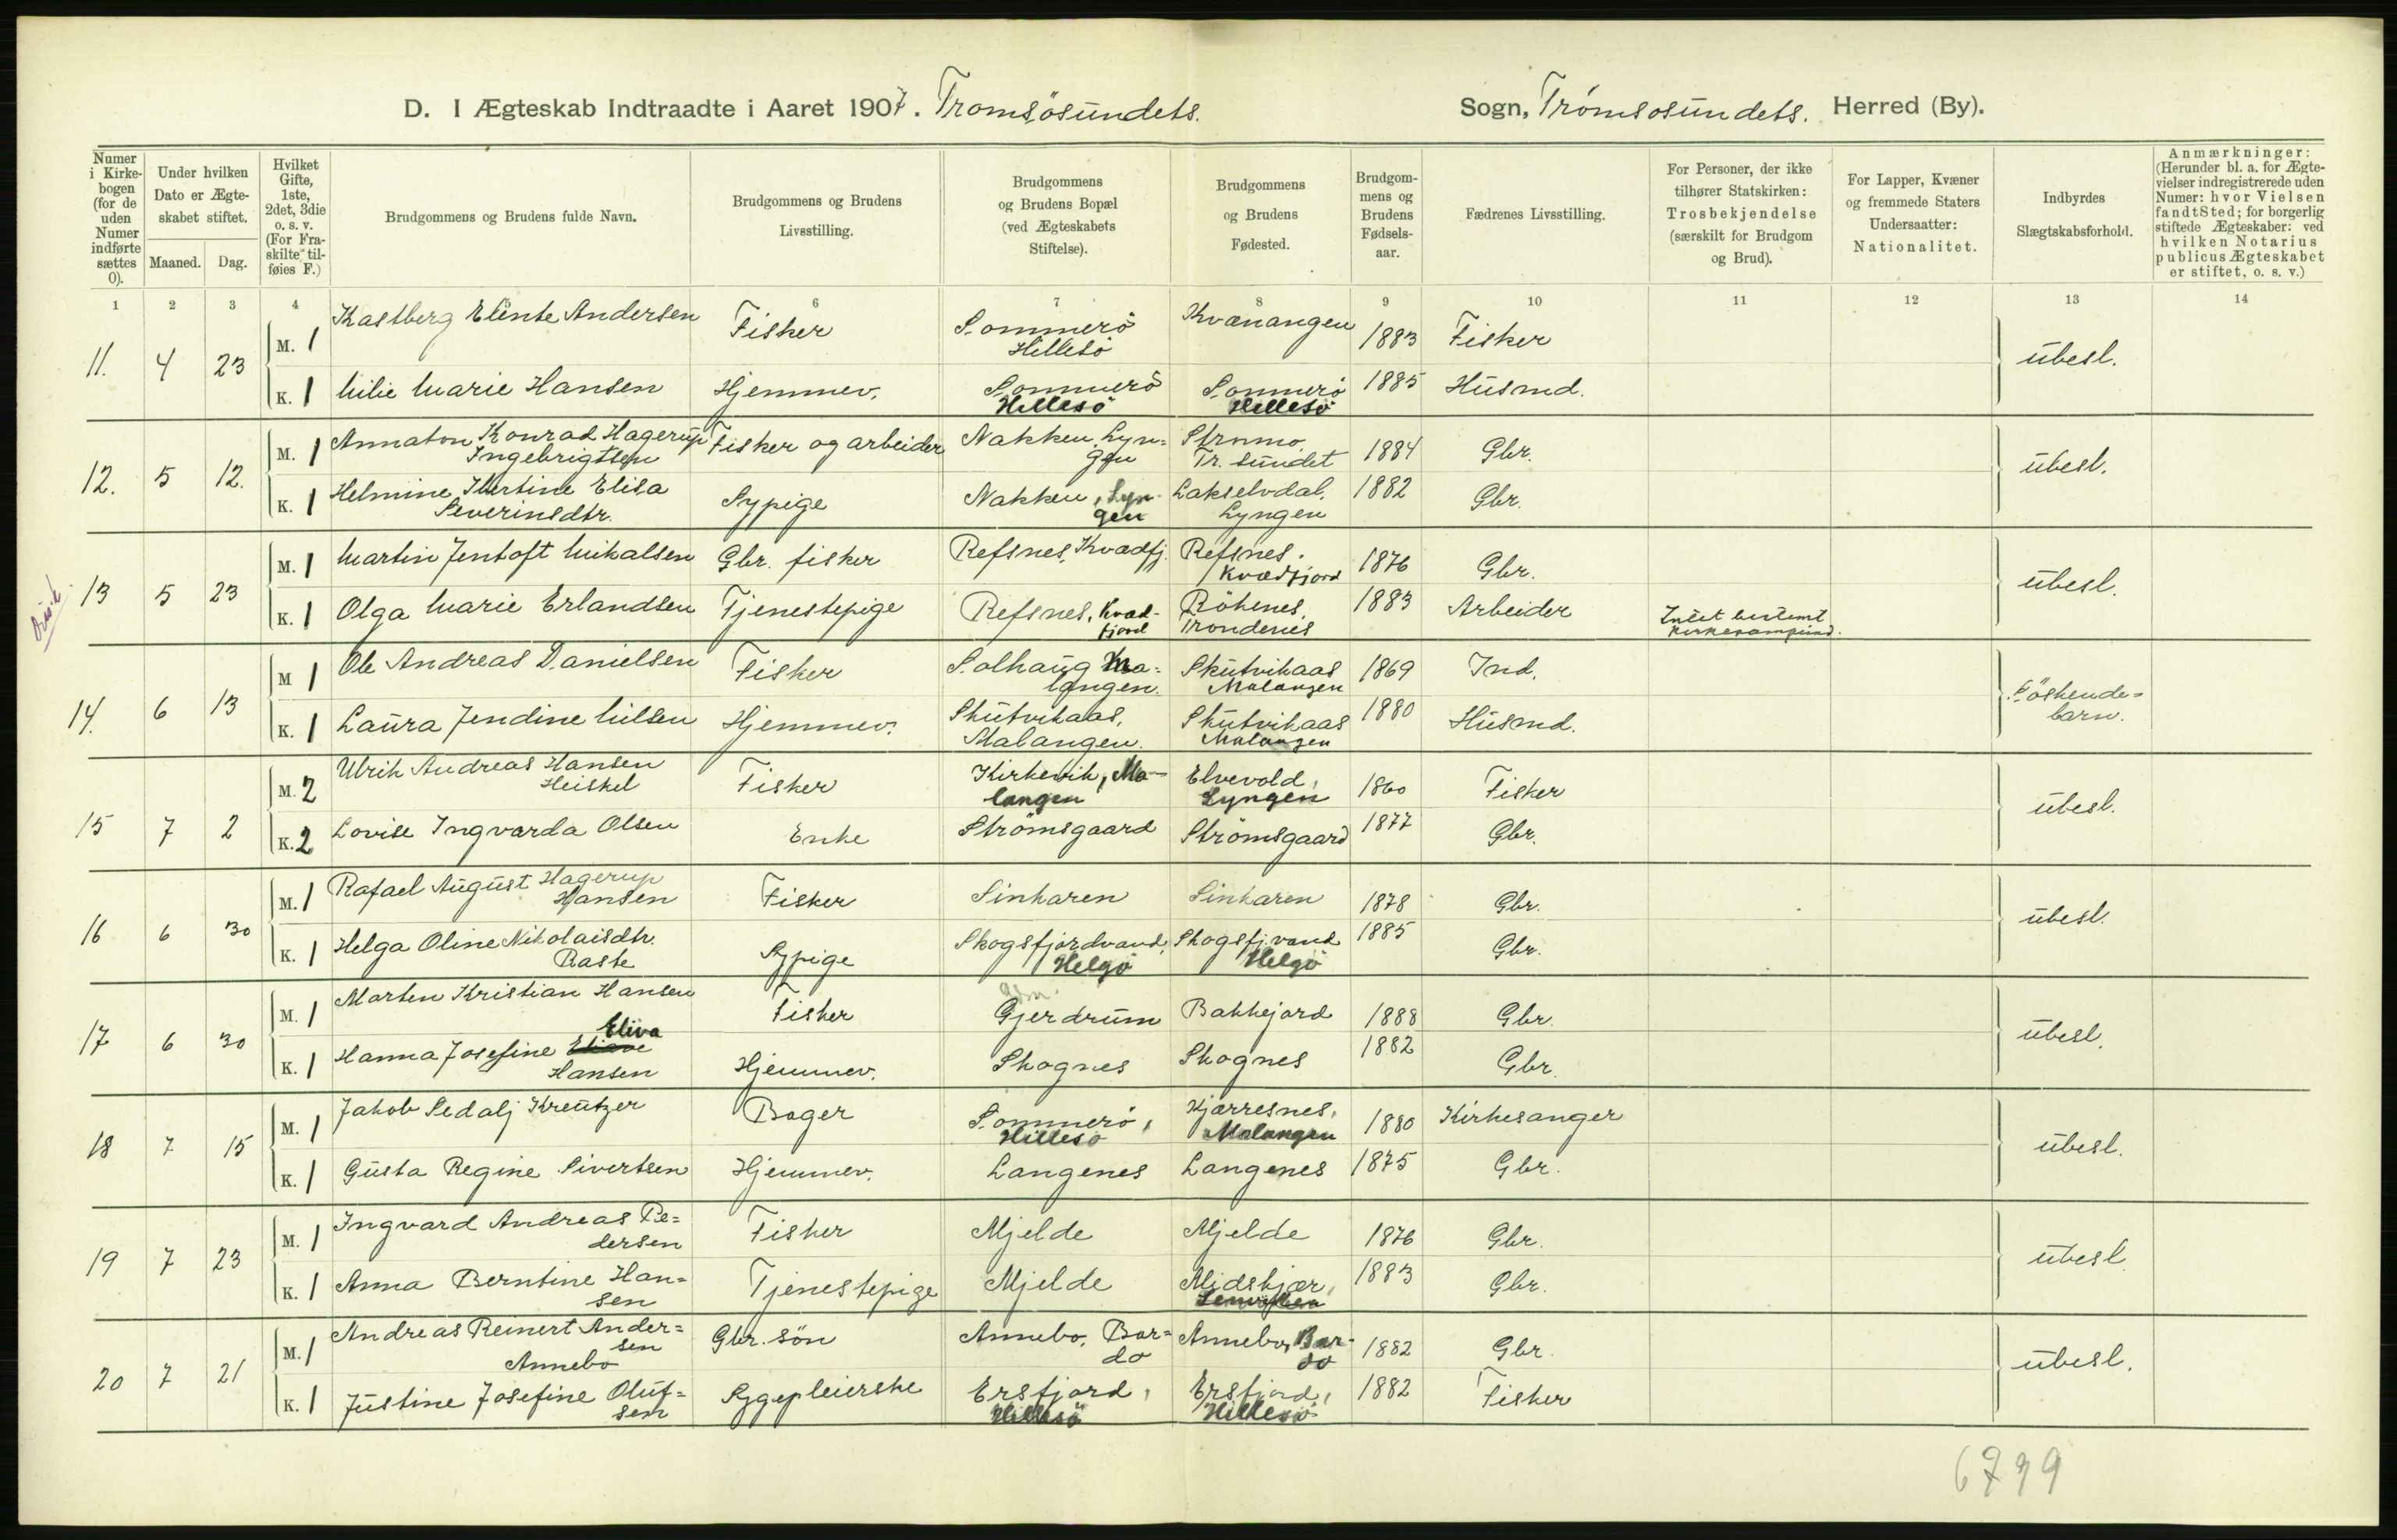 D. I Ægteskab Indtraadte i Aaret 1907. Tromsösundets. Sogn, Tromsosundets. Herred (By).
Numer i Kirkebogen (for de uden Numer indførte sættes 0).
Under hvilken Dato er Ægteskabet stiftet.
Maaned. Dag.
Hvilket Gifte, 1ste, 2det, 3die o. s. v. (For Fraskilte tilføies F.)
Brudgommens og Brudens fulde Navn.
Brudgommens og Brudens Livsstilling.
Brudgommens og Brudens Bopæl (ved Ægteskabets Stiftelse).
Brudgommens og Brudens Fødested.
Brudgommens og Brudens Fødselsaar.
Fædrenes Livsstilling.
For Personer, der ikke tilhører Statskirken: Trosbekjendelse (særskilt for Brudgom og Brud).
For Lapper, Kvæner og fremmede Staters Undersaatter: Nationalitet.
Indbyrdes Slægtskabsforhold.
Anmærkninger: (Herunder bl. a. for Ægtevielser indregistrerede uden Numer: hvor Vielsen fandt Sted; for borgerlig stiftede Ægteskaber: ved hvilken Notarius publicus Ægteskabet er stiftet, o. s. v.)
1 2 3 4 6 7 8 9 10 11 12 13 14
11. 4 23 M. 1 Kastberg Andersen Fisker Sommerö Hillesö Kvænangen 1883 Fisker ubesl.
K. 1 Milie Marie Hansen Hjemmev. Sommerö Hillesö Sommerö Hillesö 1885 Husmd.
12. 5 12. M. 1 Annaton Konrad Hagerup Ingebrigtsen Fisker og arbeider Nakken, Lyngen Tr. sundet 1884 Gbr. ubesl.
K. 1 Helmine Elisa Severinsdtr. Sypige Nakken, Lyngen Lakselvdal, Lyngen 1882 Gbr.
13 5 23 M. 1 Martin Jentoft Mikalsen Gbr. fisker Refsnes, Kvædfj. Refsnes. Kvædfjord 1876 Gbr. ubesl.
K. 1 Olga Marie Erlandsen Tjenestepige Refsnes, Kvædfjord Rökenes, Trondenes 1883 Arbeider Intet bestemt
14. 6 13 M 1 Ole Andreas Danielsen Fisker Solhaug Malangen. Skutvikaas Malangen 1869 Ind. Söskendebarn.
K. 1 Laura Jendine Nilsen Hjemmev. Skutvikaas, Malangen. Skutvikaas Malangen 1880 Husmd.
15 7 2 M. 2 Ulrik Andreas Hansen Heiskel Fisker Kirkevik, Malangen Elvevold, Lyngen 1860 Fisker ubesl.
K. 2 Lovise Ingvarda Olsen Enke Strömsgaard Strömsgaard 1877 Gbr.
16 6 30 M. 1 Rafael August Hagerup Hansen Fisker Sinkaren Sinkaren 1878 Gbr. ubesl.
K. 1 Helga Oline Nikolaisdtr. Raste Sypige Skogsfjordvand, Helgö Skogsfj. vand Helgö 1885 Gbr.
17 6 30 M. 1 Morten Kristian Hansen Fisker Gjerdrum Bakkejord 1888 Gbr. ubesl.
K. 1 Hanna Josefine Eliva Hansen Hjemmev. Skognes Skognes 1882 Gbr.
18 7 15 M. 1 Jakob Sedalj Kreutzer Bager Sommerö, Hillesö Kjærresnes, Malangen 1880 Kirkesanger ubesl.
K. 1 Gusta Regine Sivertsen Hjemmev. Langenes Langenes 1875 Gbr.
19 7 23 M. 1 Ingvard Andreas Pedersen Fisker Mjelde Mjelde 1876 Gbr. ubesl.
K. 1 Anna Berntine Hansen Tjenestepige Mjelde Midskjær, 1883 Gbr.
20 7 21 M. 1 Andreas Reinert Andersen Annebo Gbr. sön Annebo, Bardo Annebo, Bardo 1882 Gbr. ubesl.
K. 1 Justine Josefine Olufsen Sygepleierske Ersfjord, Hillesö Ersfjord, Hillesö 1882 Fisker